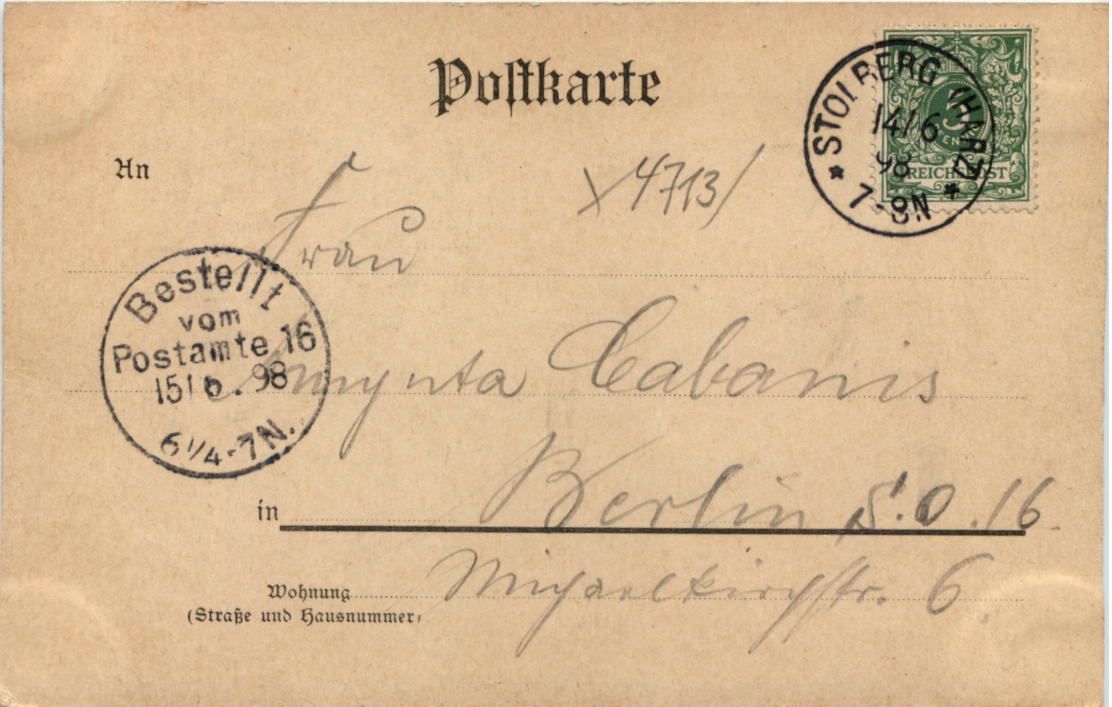 Postkarte
STOLBERG (HARZ)
14/6
98
7-8N
5
REICHSPOST
An
x 4713/
Frau
Bestellt
vom
Postamte 16
15/6.98
6 1/4-7N.
Cabanis
in Berlin S.O.16.
Wohnung
(Straße und Hausnummer)
Michaelkirchstr. 6.